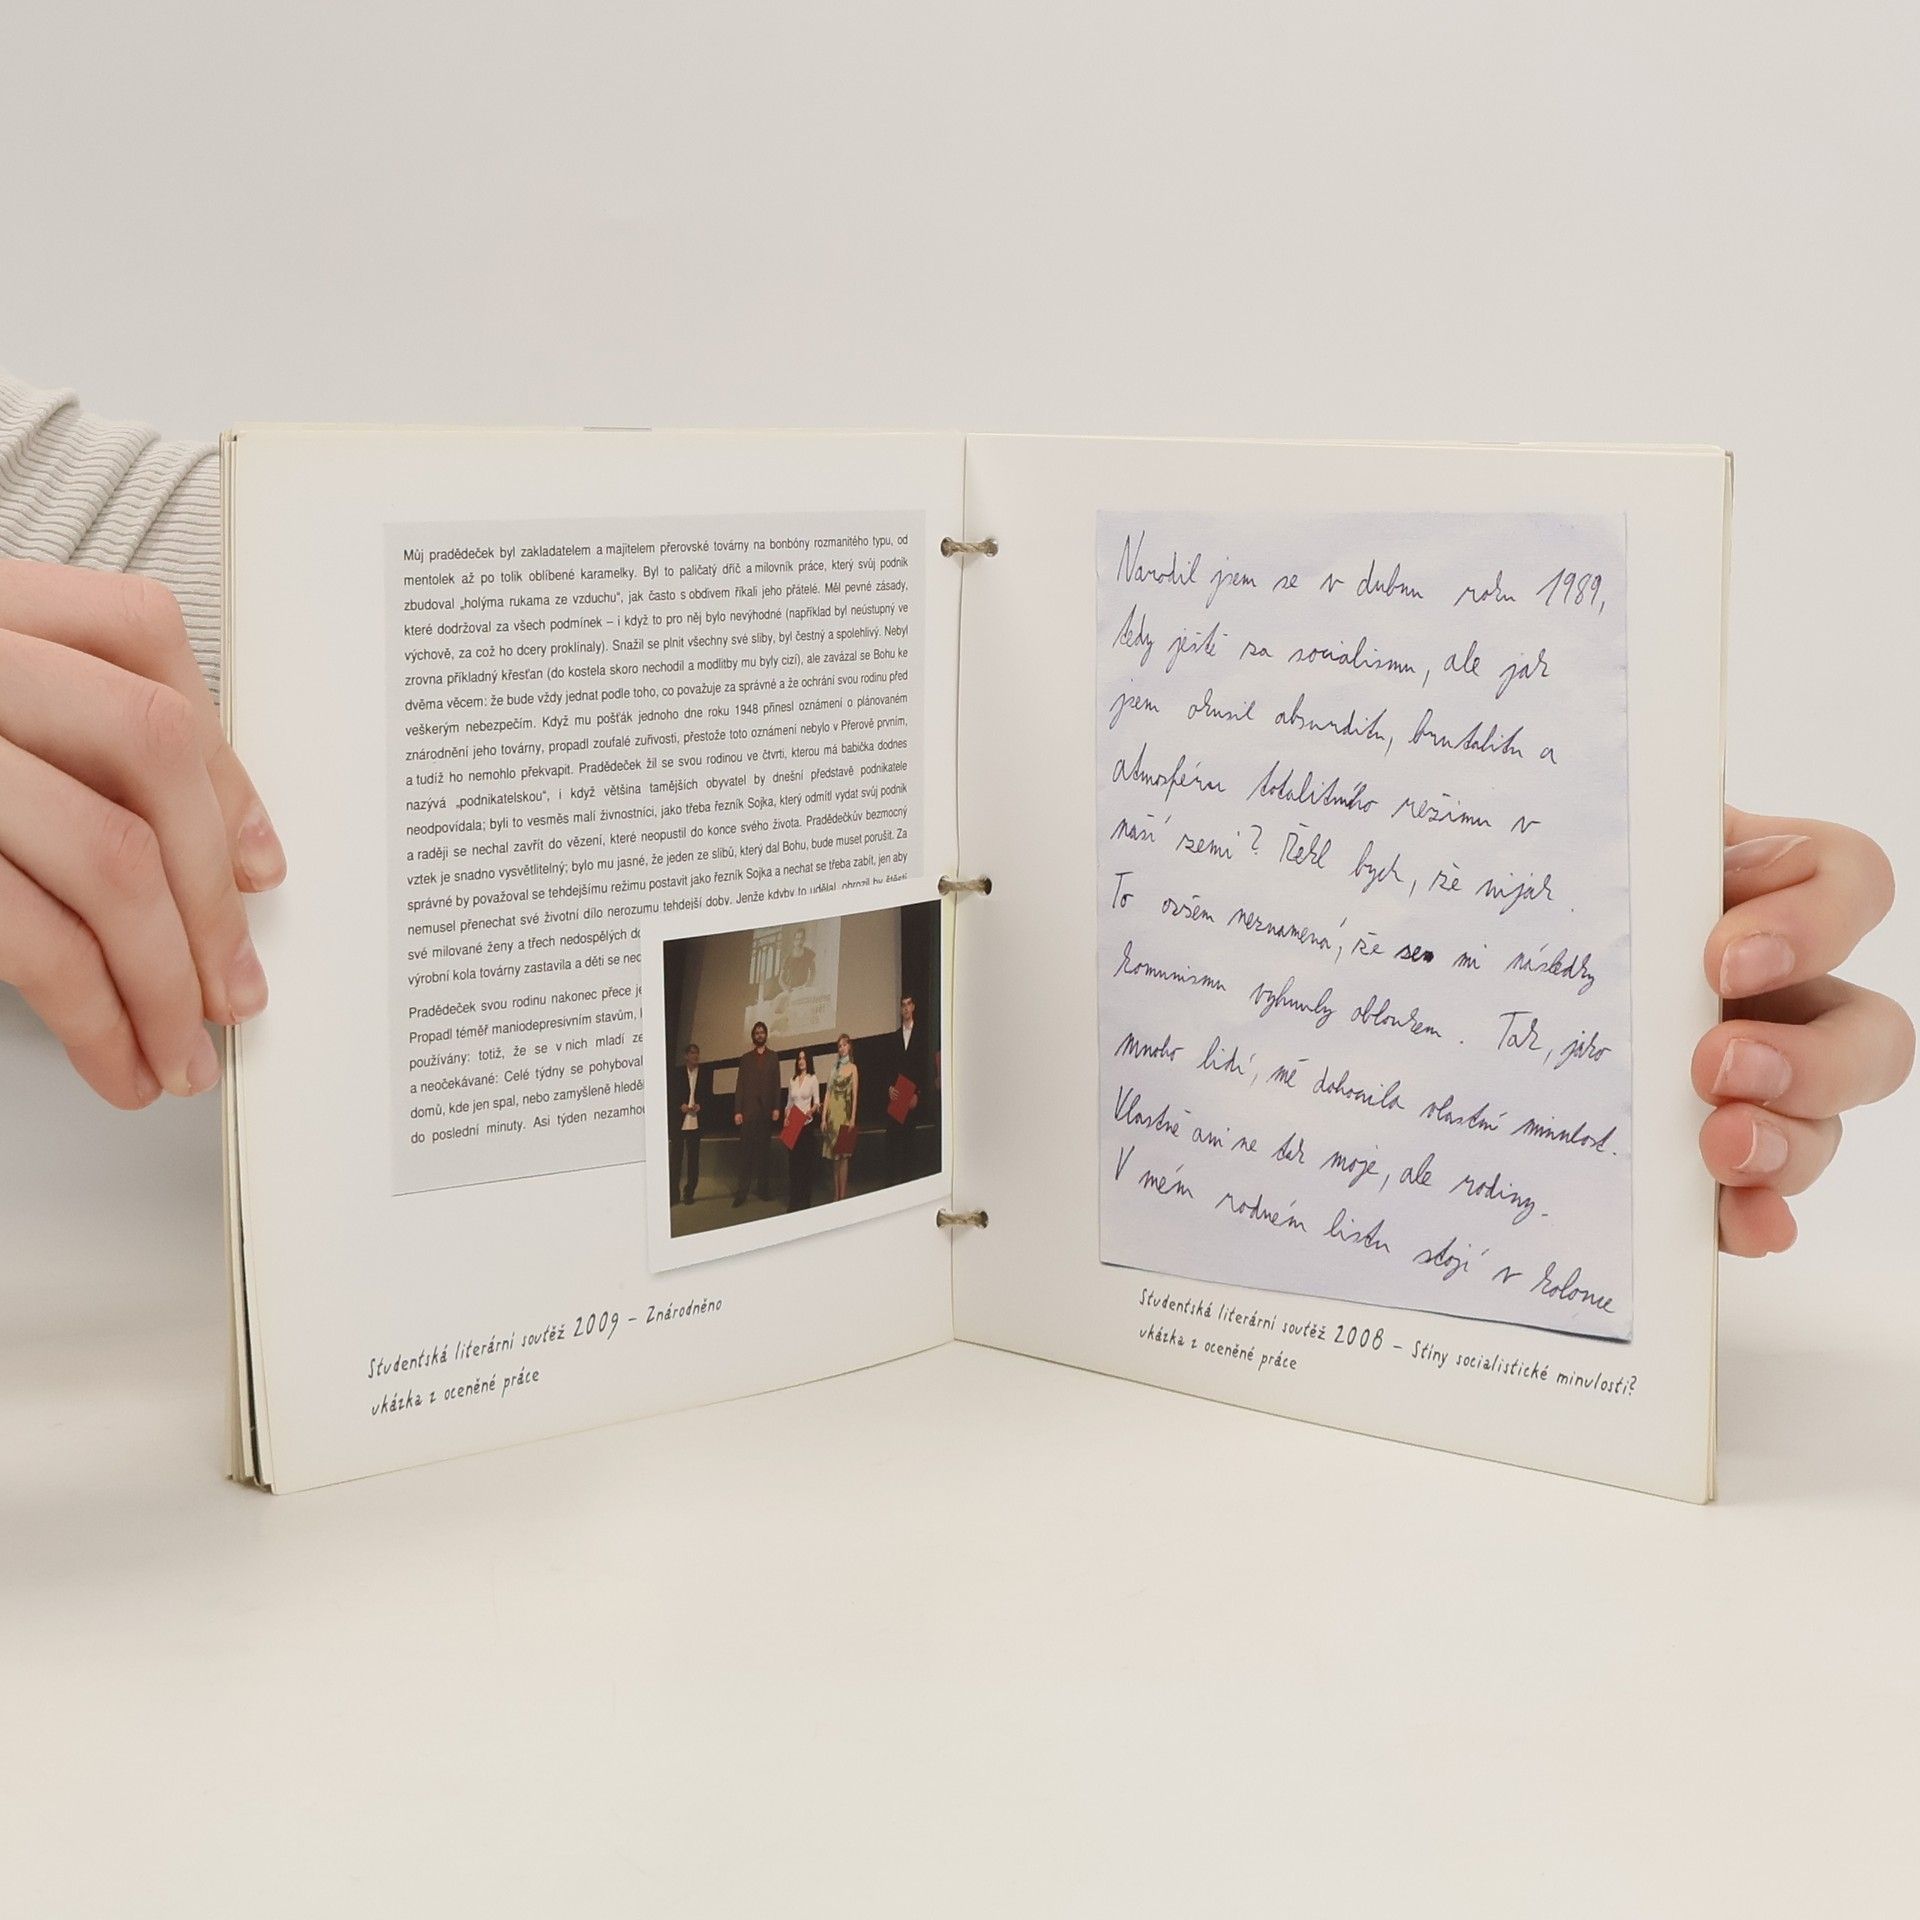 Můj pradědeček byl zakladatelem a majitelem přerovské továrny na bonbóny rozmanitého typu, od
mentolek až po tolik oblíbené karamelky. Byl to paličatý dříč a milovník práce, který svůj podnik
zbudoval „holýma rukama ze vzduchu“, jak často s obdivem říkali jeho přátelé. Měl pevné zásady,
které dodržoval za všech podmínek – i když to pro něj bylo nevýhodné (například byl neústupný ve
výchově, za což ho dcery proklínaly). Snažil se plnit všechny své sliby, byl čestný a spolehlivý. Nebyl
zrovna příkladný křesťan (do kostela skoro nechodil a modlitby mu byly cizí), ale zavázal se Bohu ke
dvěma věcem: že bude vždy jednat podle toho, co považuje za správné a že ochrání svou rodinu před
veškerým nebezpečím. Když mu pošťák jednoho dne roku 1948 přinesl oznámení o plánovaném
znárodnění jeho továrny, propadl zoufalé zuřivosti, přestože toto oznámení nebylo v Přerově prvním,
a tudíž ho nemohlo překvapit. Pradědeček žil se svou rodinou ve čtvrti, kterou má babička dodnes
nazývá „podnikatelskou“, i když většina tamějších obyvatel by dnešní představě podnikatele
neodpovídala; byli to vesměs malí živnostníci, jako třeba řezník Sojka, který odmítl vydat svůj podnik
a raději se nechal zavřít do vězení, které neopustil do konce svého života. Pradědečkův bezmocný
vztek je snadno vysvětlitelný; bylo mu jasné, že jeden ze slibů, který dal Bohu, bude muset porušit. Za
správné by považoval se tehdejšímu režimu postavit jako řezník Sojka a nechat se třeba zabít, jen aby
nemusel přenechat své životní dílo nerozumu tehdejší doby. Jenže kdyby to udělal, ohrozil by štěstí
své milované ženy a třech nedospělých
výrobní kola továrny zastavila a děti se
Pradědeček svou rodinu nakonec přece
Propadl téměř maniodepresivním stavům,
používány: totiž, že se v nich mladí
a neočekávané: Celé týdny se pohyboval
domů, kde jen spal, nebo zamyšleně
do poslední minuty. Asi týden
Studentská literární soutěž 2009 – Znárodněno
ukázka z oceněné práce
Narodil jsem se v dubnu roku 1989,
tedy ještě za socialismu, ale jak
jsem okusil absurditu, brutalitu a
atmosféru totalitního režimu v
naší zemi? Řekl bych, že nijak.
To ovšem neznamená, že se mi následky
komunismu vyhnuly obloukem. Tak, jako
mnoho lidí, mě dohonila vlastní minulost.
Vlastně ani ne tak moje, ale rodiny.
V mém rodném listu stojí v kolonce
Studentská literární soutěž 2008 – Stíny socialistické minulosti?
ukázka z oceněné práce